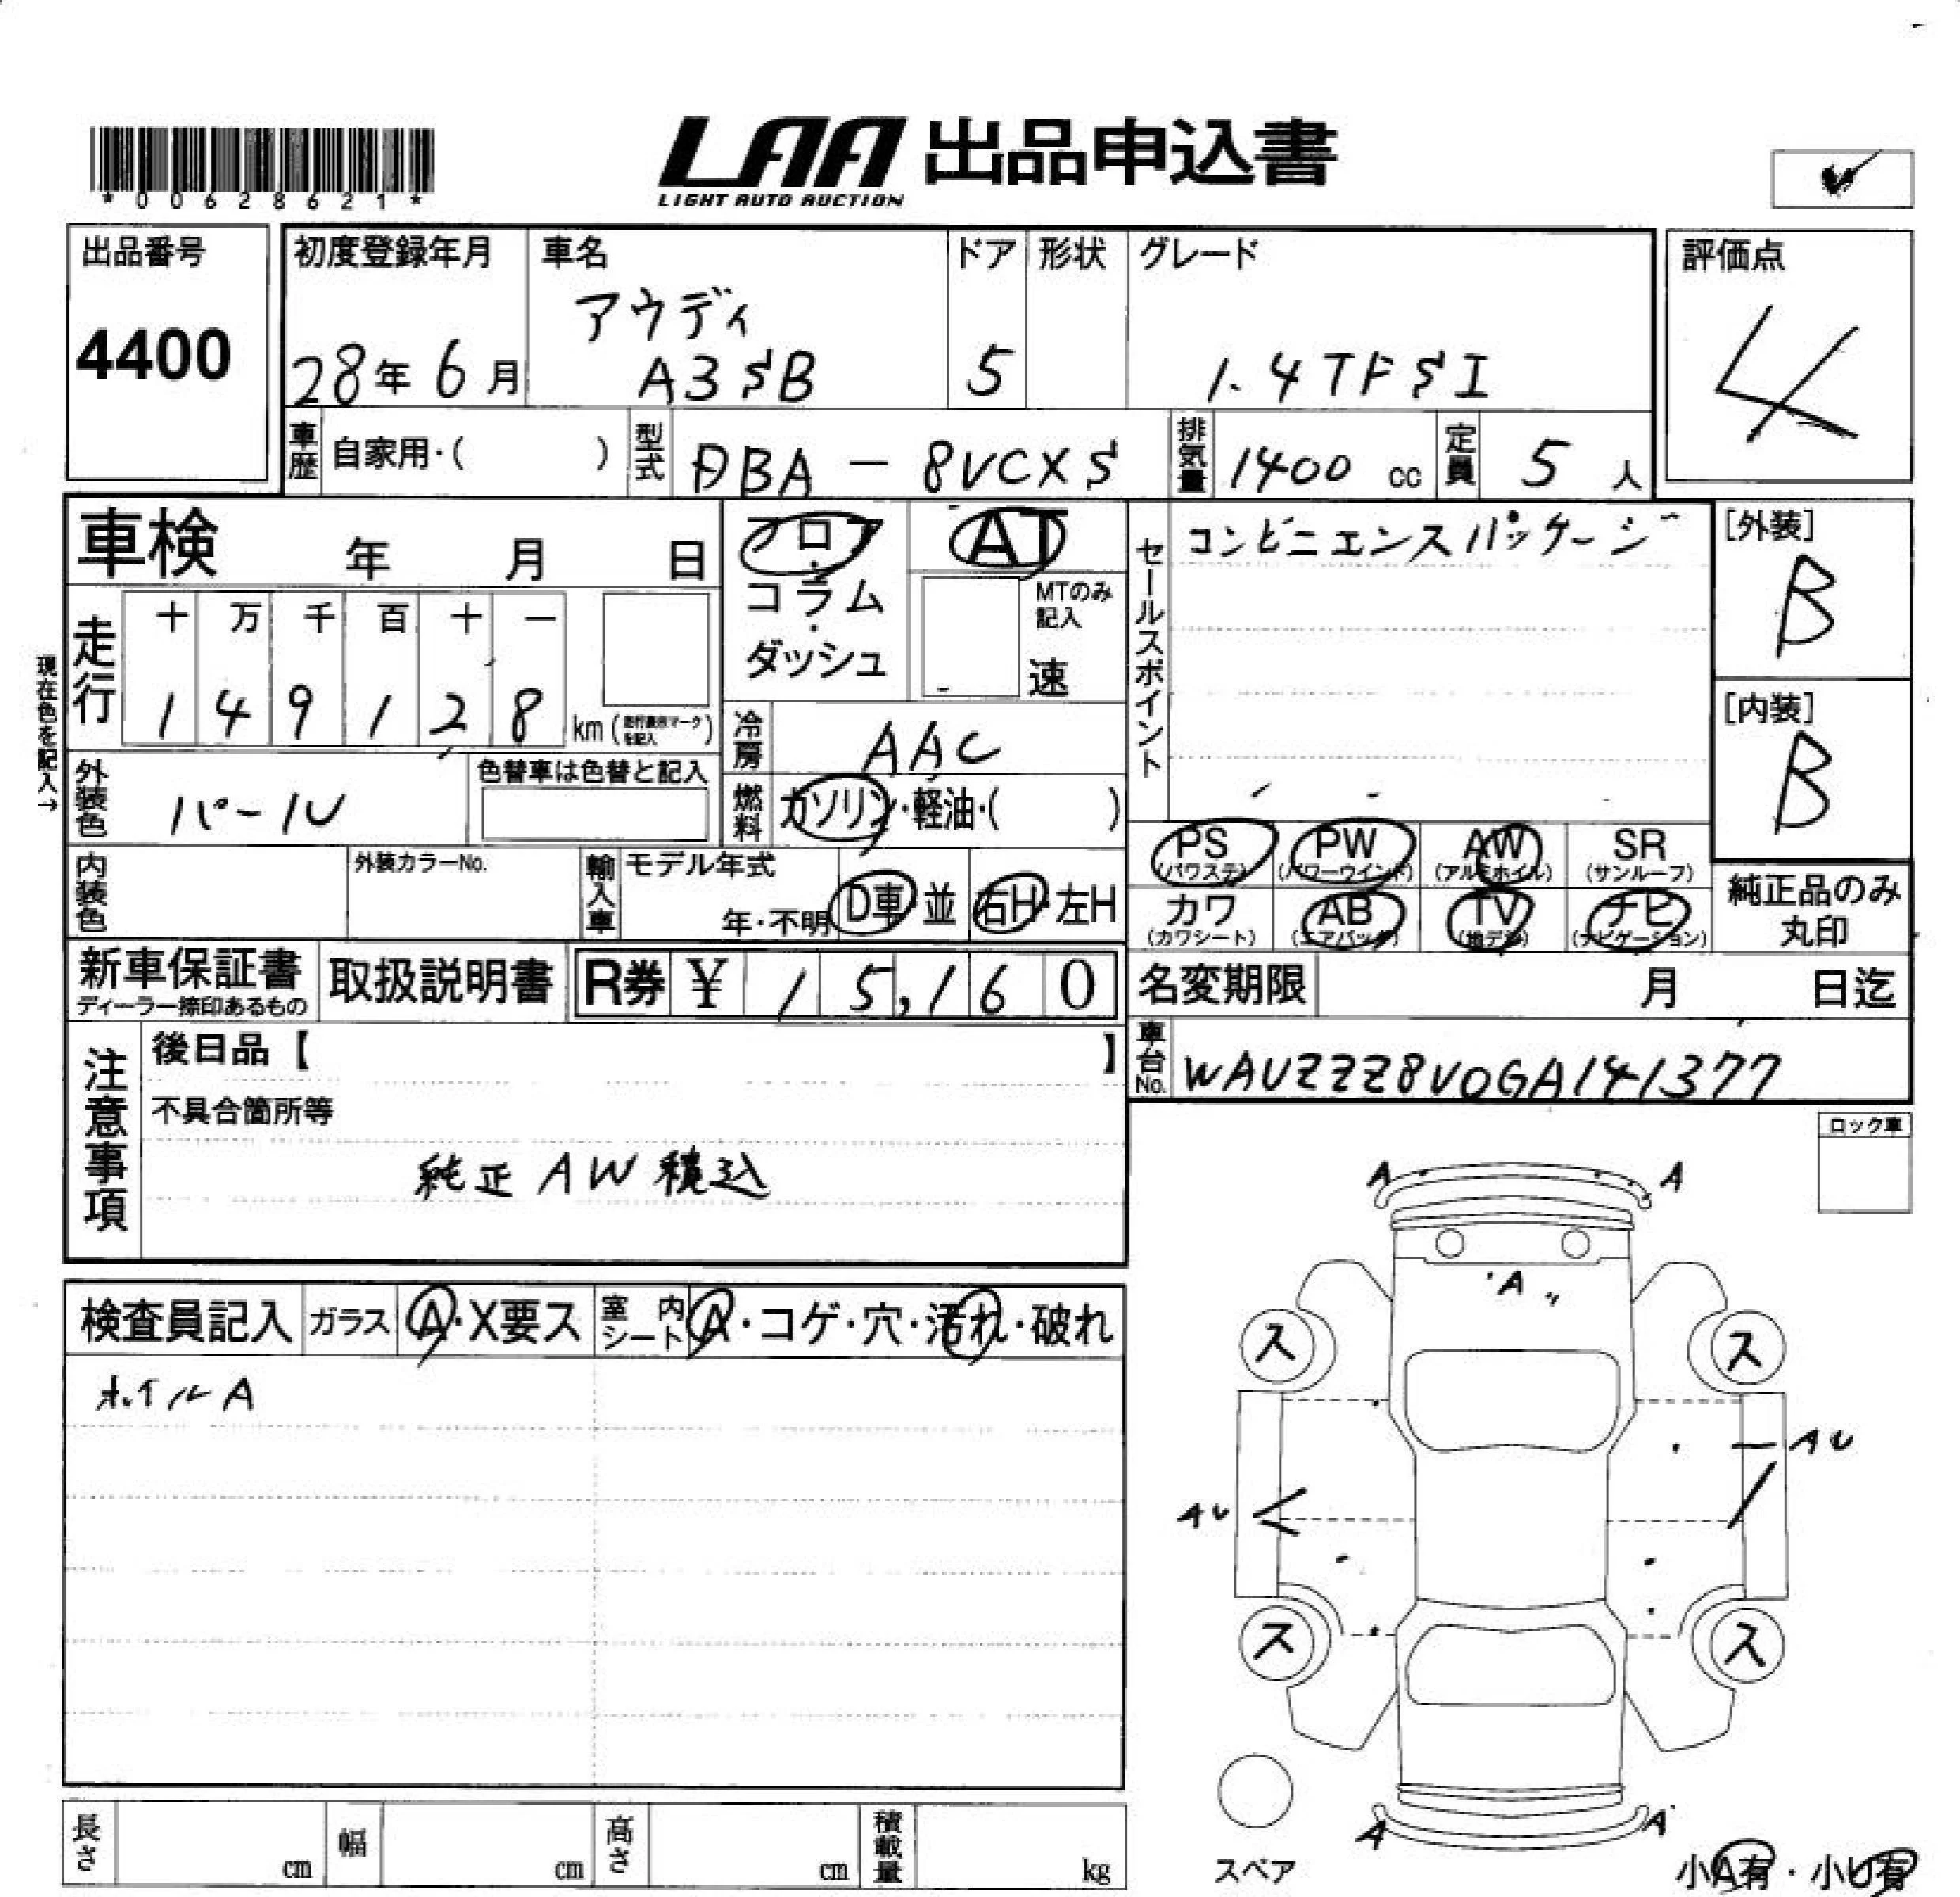 LAA 出品申込書
LIGHT AUTO AUCTION
*00628621*
出品番号
4400
初度登録年月
28年 6月
車名
アウディ
A3SB
ドア
5
形状
グレード
1.4TFSI
評価点
4
車歴 自家用・( )
型式 DBA-8VCXS
排気量 1400 cc
定員 5 人
車検 年 月 日
フロア・コラム・ダッシュ
AT
MTのみ記入
速
セールスポイント
コンビニエンスパッケージ
[外装]
B
[内装]
B
現在色を記入→
走行
十 万 千 百 十 一
1 4 9 1 2 8 km (走行表示マークを記入)
冷房 AAC
外装色 パール
色替車は色替と記入
燃料 ガソリン・軽油・( )
内装色
外装カラーNo.
輸入車
モデル年式
年・不明
D車・並
右H・左H
PS (パワステ)
PW (パワーウインド)
AW (アルミホイル)
SR (サンルーフ)
カワ (カワシート)
AB (エアバッグ)
TV (地デジ)
ナビ (ナビゲーション)
純正品のみ丸印
新車保証書
ディーラー捺印あるもの
取扱説明書
R券 ¥ 15,160
名変期限 月 日迄
車台No. WAUZZZ8V0GA141377
注意事項
後日品【 】
不具合箇所等
純正 AW 積込
ロック車
検査員記入
ガラス A・X要ス
室内シート A・コゲ・穴・汚れ・破れ
ホイルA
A
A
A
ス
ス
AU
AU
ス
ス
A
A
スペア
小A有・小U有
長さ cm
幅 cm
高さ cm
積載量 kg